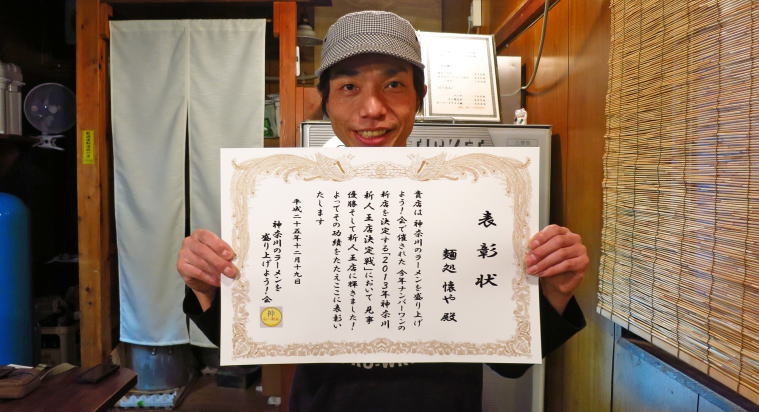 表彰状
麺処 懐や 殿
貴店は 神奈川のラーメンを盛り上げ
よう！会で催された 今年ナンバーワンの
新店を決定する「2013年神奈川
新人王店決定戦」において 見事
優勝そして新人王店に輝きました！
よってその功績をたたえここに表彰い
たします
平成二十五年十二月十九日
神奈川のラーメンを
盛り上げよう！会